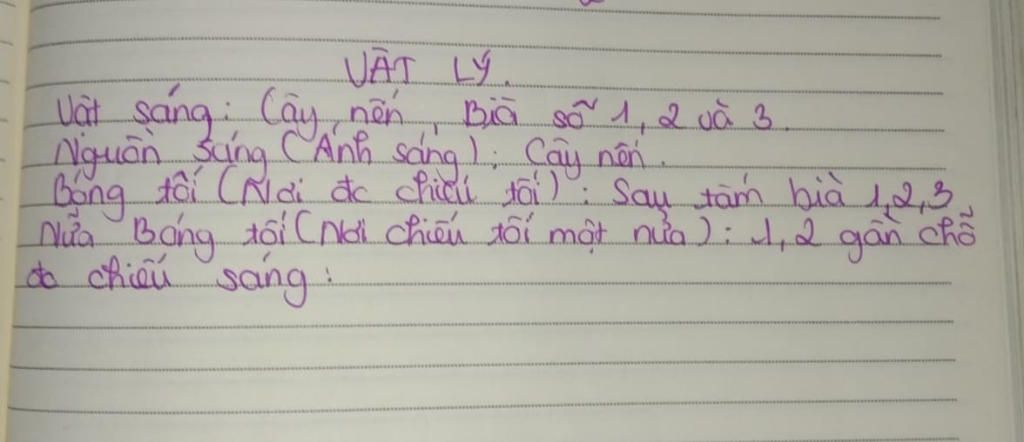 VẬT LÝ.
Vật sáng: Cây nến, Bìa số 1, 2 và 3.
Nguồn sáng (Ánh sáng): Cây nến.
Bóng tối (Nơi đc chiếu tối): Sau tấm bìa 1,2,3
Nửa Bóng tối (Nơi chiếu tối một nửa): 1,2 gần chỗ
đc chiếu sáng: